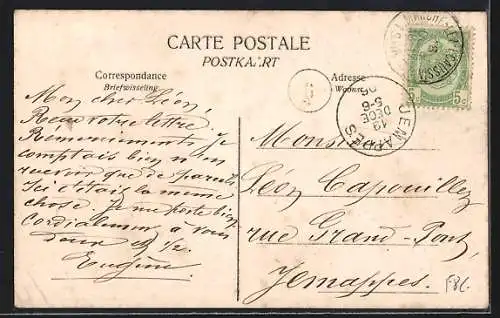 CARTE POSTALE
POSTKAART
Correspondance
Briefwisseling
Adresse
Woonst
Mon cher Léon,
Reçu votre lettre. Je
comptais bien n'en
recevoir que de
Ici et tais la même
chose. Je me porte bien
Cordialement à vous
deux
Eugène
JEMAPPES
5-6
DECE
5c 5c
Monsieur
Léon Capouillez
rue Grand-Pont,
Jemappes.